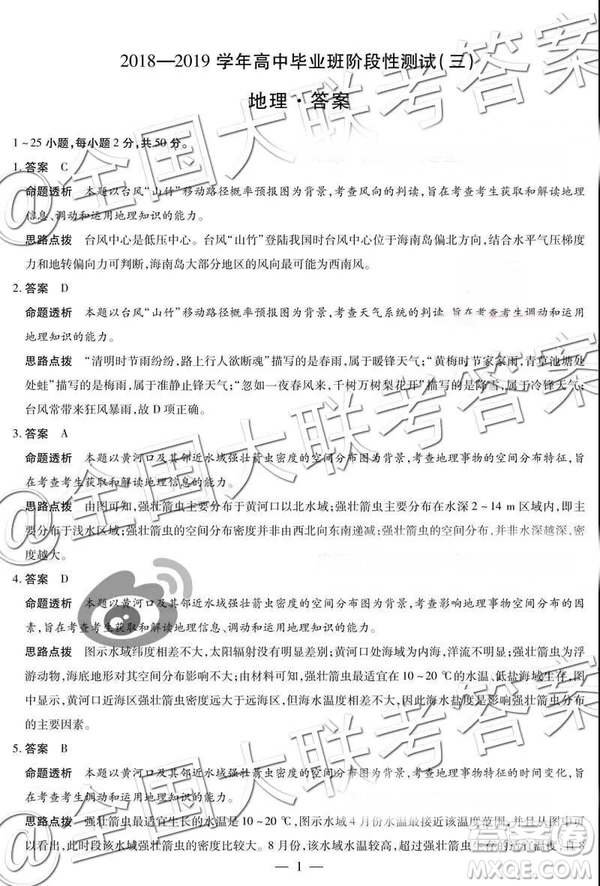 2018—2019 学年高中毕业班阶段性测试(三)
地理·答案
1~25小题,每小题2分,共50分。
1. 答案 C
命题透析 本题以台风“山竹”移动路径概率预报图为背景,考查风向的判读,旨在考查考生获取和解读地理
信息、调动和运用地理知识的能力。
思路点拨 台风中心是低压中心。台风“山竹”登陆我国时台风中心位于海南岛偏北方向,结合水平气压梯度
力和地转偏向力可判断,海南岛大部分地区的风向最可能为西南风。
2. 答案 D
命题透析 本题以台风“山竹”移动路径概率预报图为背景,考查天气系统的判读,旨在考查考生调动和运用
地理知识的能力。
思路点拨 “清明时节雨纷纷,路上行人欲断魂”描写的是春雨,属于暖锋天气;“黄梅时节家家雨,青草池塘处
处蛙”描写的是梅雨,属于准静止锋天气;“忽如一夜春风来,千树万树梨花开”描写的是降雪,属于冷锋天气;
台风常带来狂风暴雨,故D项正确。
3. 答案 A
命题透析 本题以黄河口及其邻近水域强壮箭虫密度的空间分布图为背景,考查地理事物的空间分布特征,旨
在考查考生获取和解读地理信息的能力。
思路点拨 由图可知,强壮箭虫主要分布于黄河口以北水域;强壮箭虫主要分布在水深2~14 m区域内,即主
要分布于浅水区域;强壮箭虫的空间分布密度并非由西北向东南递减;强壮箭虫的空间分布,并非水深越深,密
度越大。
4. 答案 D
命题透析 本题以黄河口及其邻近水域强壮箭虫密度的空间分布图为背景,考查影响地理事物空间分布的因
素,旨在考查考生获取和解读地理信息、调动和运用地理知识的能力。
思路点拨 图示水域纬度相差不大,太阳辐射没有明显差异;黄河口处海域为内海,洋流不明显;强壮箭虫为浮
游动物,海底地形对其影响不大;强壮箭虫最适宜在10~20℃的水温、低盐海域生存,图示海域水温相差不大,
但黄河口附近海区强壮箭虫密度远大于远海区,但海水温度相差不大,因此海水盐度是影响强壮箭虫分布
的主要因素。
5. 答案 B
命题透析 本题以黄河口及其邻近水域强壮箭虫密度的空间分布图为背景,考查地理事物特征的时间变化,旨
在考查考生调动和运用地理知识的能力。
思路点拨 强壮箭虫最适宜的水温是10~20℃,图示水域4月份水温最接近该温度范围,由图中
可以看出 8月份,
1
@全国大联考答案